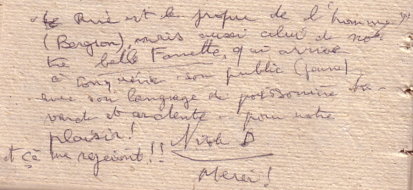 "Le rire est le propre de l'homme"
(Bergson), mais aussi celui de no-
tre belle Fanette, qui arrive
à conquérir son public (jeune)
avec son langage de poissonnière ba-
varde et ardente - pour notre
plaisir! Nicole D
et çà me rajeunit!!
Merci!